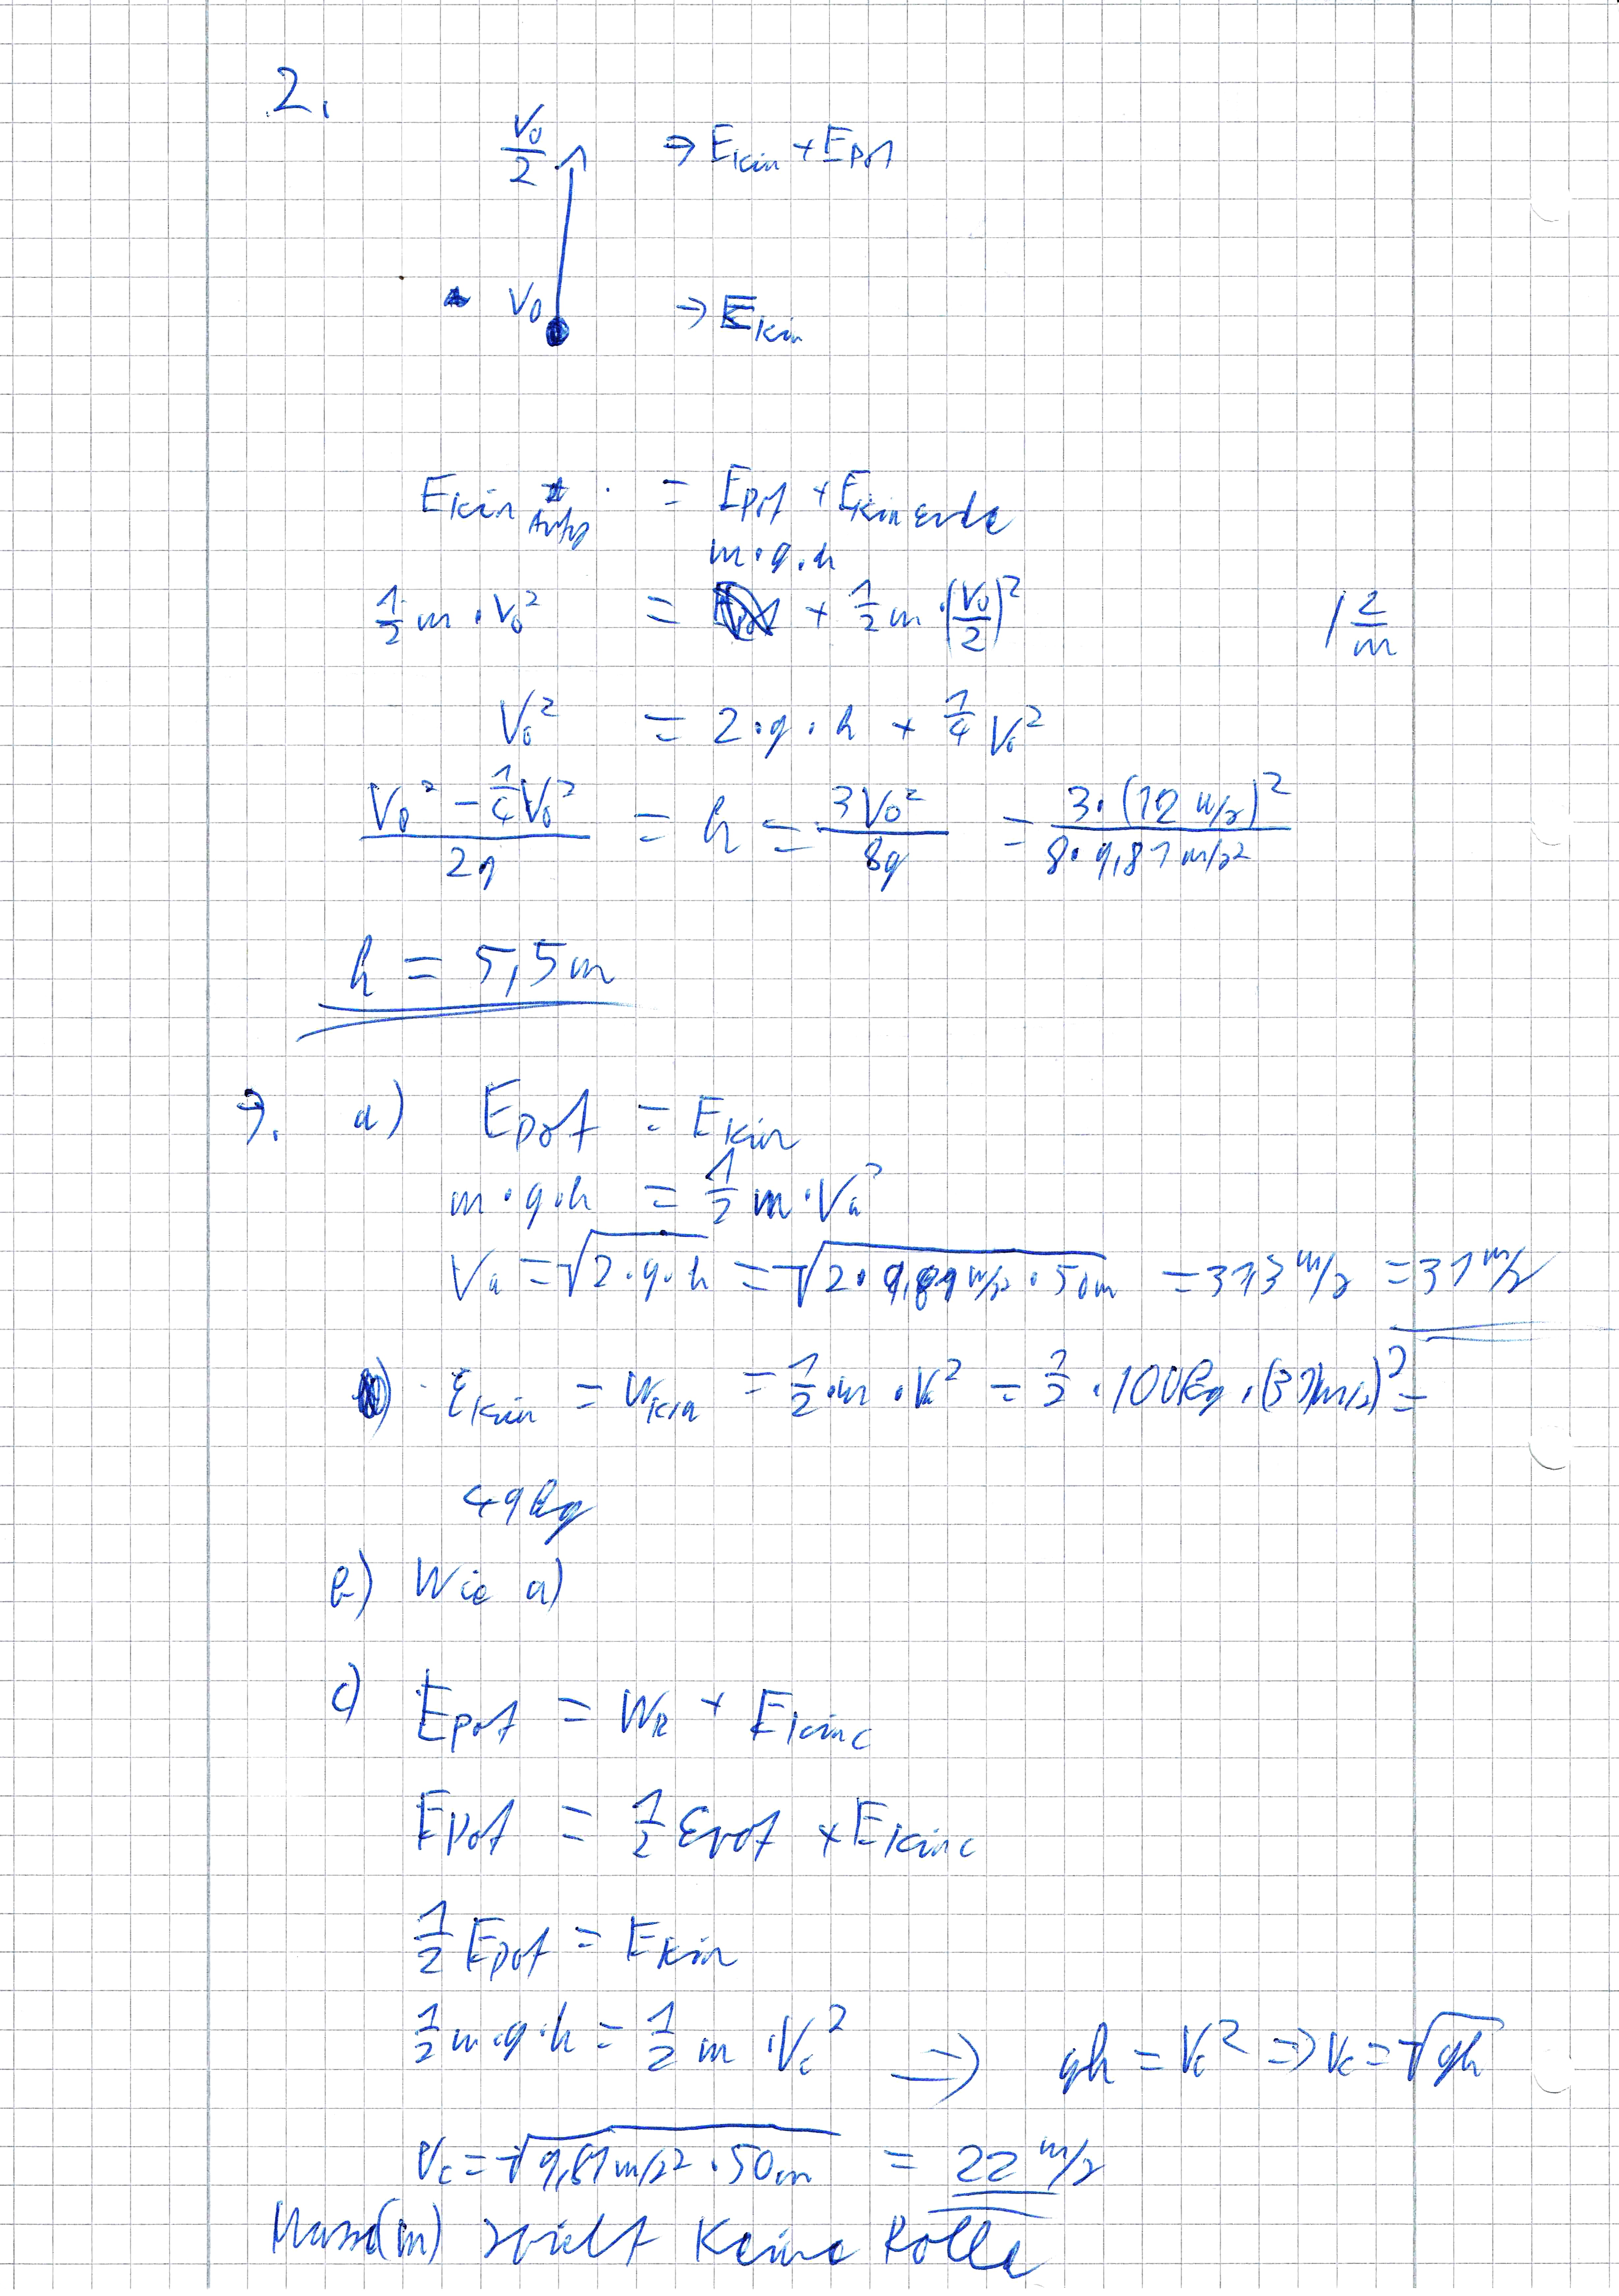 2.
V₀/2 → Ekin + Epot
V₀ → Ekin
Ekin = Epot + Ekin ende
m·g·h
1/2 m · V₀² = + 1/2 m · (V₀/2)² | 2/m
V₀² = 2·g·h + 1/4 V₀²
(V₀² − 1/4 V₀²)/2g = h = 3V₀²/8g = 3·(12 m/s)²/8·9,81 m/s²
h = 5,5 m
7. a) Epot = Ekin
m·g·h = 1/2 m·Va²
Va = √2·g·h = √2·9,81 m/s²·50m = 31,3 m/s = 31 m/s
Ekin = Wkin = 1/2·m·Va² = 1/2·100kg·(31m/s)² =
49 kg
b) Wie a)
c) Epot = WR + Ekinc
Epot = 1/2 Epot + Ekinc
1/2 Epot = Ekin
1/2 m·g·h = 1/2 m·Vc² ⇒ gh = Vc² ⇒ Vc = √gh
Vc = √9,81 m/s²·50m = 22 m/s
Masse(m) spielt keine Rolle